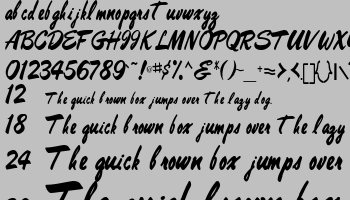 ab cd eb gh i j kl mnopqrs T uvwxyz
ABCDEFGH99K LMNOPQRSTUVWX
0123456789
12 The quick brown box jumps over The lazy dog.
18 The quick brown box jumps over The lazy
24 The quick brown box jumps over
The quick brown box